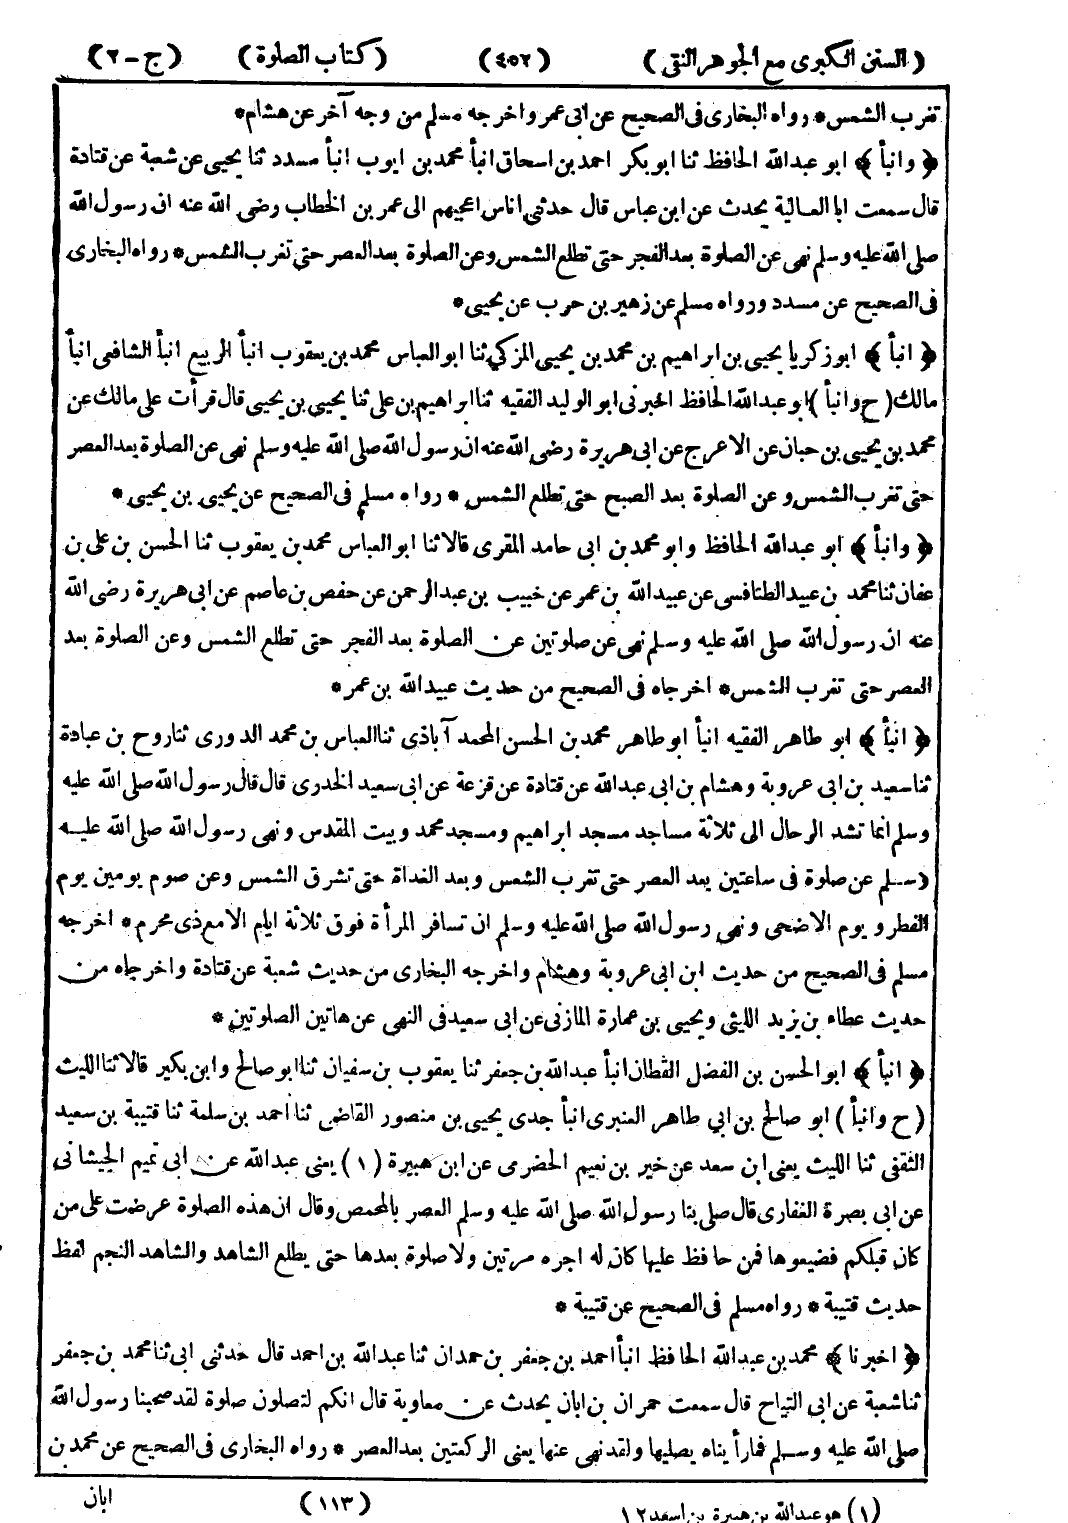 (السنن الكبرى مع الجوهر النقى) (٤٥٢) (كتاب الصلوة) (ج-٢)
تغرب الشمس * رواه البخارى فى الصحيح عن ابى عمر واخرجه مسلم من وجه آخر عن هشام *
﴿ وانبأ ﴾ ابو عبدالله الحافظ ثنا ابو بكر احمد بن اسحاق انبأ محمد بن ايوب انبأ مسدد ثنا يحيى عن شعبة عن قتادة
قال سمعت ابا العالية يحدث عن ابن عباس قال حدثنى اناس اعجبهم الى عمر بن الخطاب رضى الله عنه ان رسول الله
صلى الله عليه وسلم نهى عن الصلوة بعد الفجر حتى تطلع الشمس وعن الصلوة بعد العصر حتى تغرب الشمس * رواه البخارى
فى الصحيح عن مسدد ورواه مسلم عن زهير بن حرب عن يحيى *
﴿ انبأ ﴾ ابو زكريا يحيى بن ابراهيم بن محمد بن يحيى المزكي ثنا ابو العباس محمد بن يعقوب انبأ الربيع انبأ الشافعى انبأ
مالك (ح وانبأ) ابو عبدالله الحافظ اخبرنى ابو الوليد الفقيه ثنا ابراهيم بن على ثنا يحيى بن يحيى قال قرأت على مالك عن
محمد بن يحيى بن حبان عن الاعرج عن ابى هريرة رضى الله عنه ان رسول الله صلى الله عليه وسلم نهى عن الصلوة بعد العصر
حتى تغرب الشمس وعن الصلوة بعد الصبح حتى تطلع الشمس * رواه مسلم فى الصحيح عن يحيى بن يحيى *
﴿ وانبأ ﴾ ابو عبدالله الحافظ وابو محمد بن ابى حامد المقرى قالا ثنا ابو العباس محمد بن يعقوب ثنا الحسن بن على بن
عفان ثنا محمد بن عبيد الطنافسى عن عبيد الله بن عمر عن خبيب بن عبد الرحمن عن حفص بن عاصم عن ابى هريرة رضى الله
عنه ان رسول الله صلى الله عليه وسلم نهى عن صلوتين عن الصلوة بعد الفجر حتى تطلع الشمس وعن الصلوة بعد
العصر حتى تغرب الشمس * اخرجاه فى الصحيح من حديث عبيدالله بن عمر *
﴿ انبأ ﴾ ابو طاهر الفقيه انبأ ابو طاهر محمد بن الحسن المحمد آباذى ثنا العباس بن محمد الدورى ثنا روح بن عبادة
ثنا سعيد بن ابى عروبة وهشام بن ابى عبدالله عن قتادة عن قزعة عن ابى سعيد الخدرى قال قال رسول الله صلى الله عليه
وسلم انما تشد الرحال الى ثلاثة مساجد مسجد ابراهيم ومسجد محمد وبيت المقدس ونهى رسول الله صلى الله عليه
وسلم عن صلوة فى ساعتين بعد العصر حتى تغرب الشمس وبعد الغداة حتى تشرق الشمس وعن صوم يومين يوم
الفطر ويوم الاضحى ونهى رسول الله صلى الله عليه وسلم ان تسافر المرأة فوق ثلاثة ايام الا مع ذى محرم * اخرجه
مسلم فى الصحيح من حديث ابن ابى عروبة وهشام واخرجه البخارى من حديث شعبة عن قتادة واخرجاه من
حديث عطاء بن يزيد الليثى ويحيى بن عمارة المازنى عن ابى سعيد فى النهى عن هاتين الصلوتين *
﴿ انبأ ﴾ ابو الحسين بن الفضل القطان انبأ عبدالله بن جعفر ثنا يعقوب بن سفيان ثنا ابو صالح وابن بكير قالا ثنا الليث
(ح وانبأ) ابو صالح بن ابي طاهر العنبرى انبأ جدى يحيى بن منصور القاضى ثنا احمد بن سلمة ثنا قتيبة بن سعيد
الثقفى ثنا الليث يعنى ابن سعد عن خير بن نعيم الحضرمى عن ابن هبيرة (١) يعنى عبدالله عن ابى تميم الجيشانى
عن ابى بصرة الغفارى قال صلى بنا رسول الله صلى الله عليه وسلم العصر بالمخمص وقال ان هذه الصلوة عرضت على من
كان قبلكم فضيعوها فمن حافظ عليها كان له اجره مرتين ولا صلوة بعدها حتى يطلع الشاهد والشاهد النجم لفظ
حديث قتيبة * رواه مسلم فى الصحيح عن قتيبة *
﴿ اخبرنا ﴾ محمد بن عبدالله الحافظ انبأ احمد بن جعفر بن حمدان ثنا عبدالله بن احمد قال حدثنى ابى ثنا محمد بن جعفر
ثنا شعبة عن ابى التياح قال سمعت حمران بن ابان يحدث عن معاوية قال انكم لتصلون صلوة لقد صحبنا رسول الله
صلى الله عليه وسلم فما رأيناه يصليها ولقد نهى عنها يعنى الركعتين بعد العصر * رواه البخارى فى الصحيح عن محمد بن
(١١٣) ابان
(١) هو عبدالله بن هبيرة بن اسعد ١٢